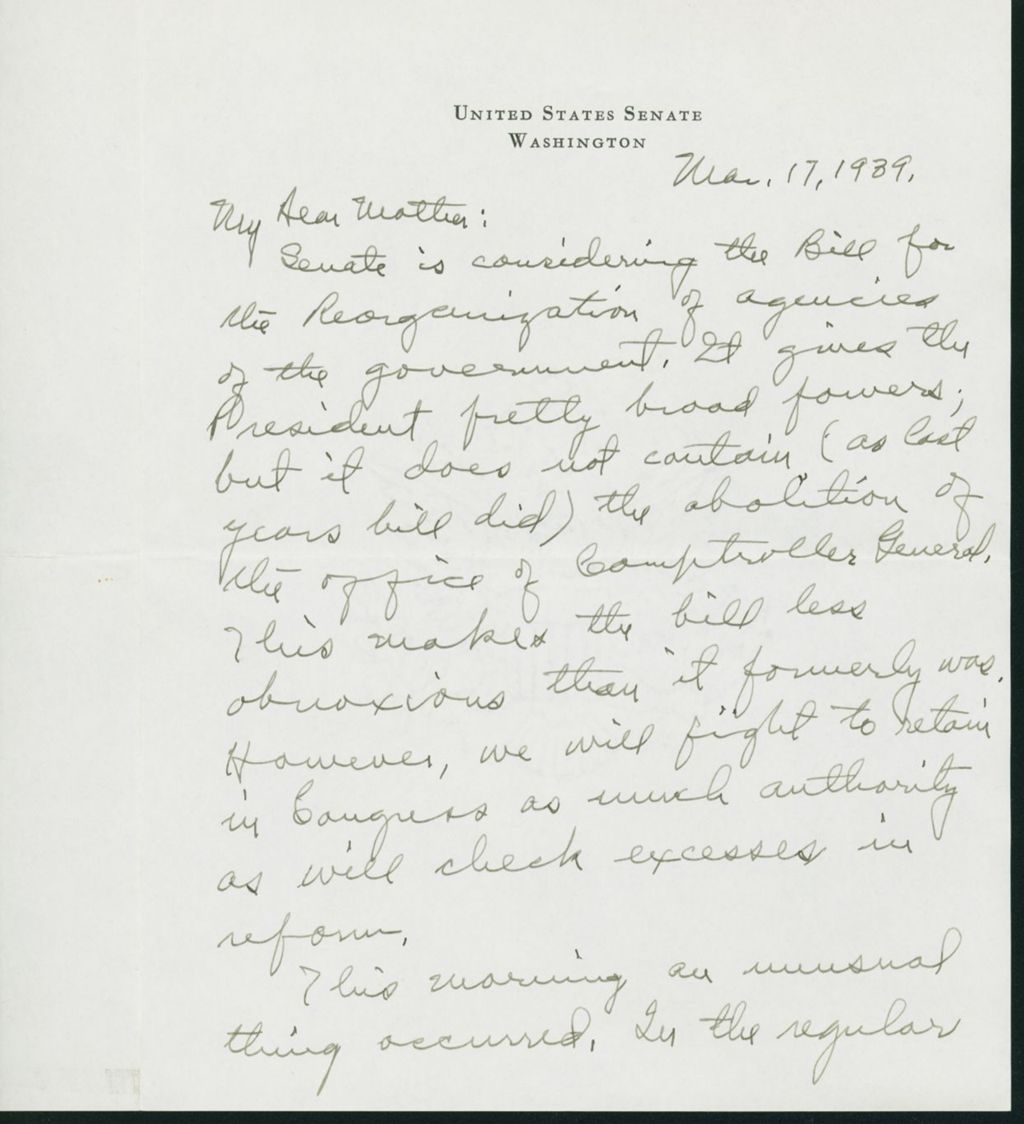 UNITED STATES SENATE
WASHINGTON
Mar. 17, 1939.
My Dear Mother:
Senate is considering the Bill for
the Reorganization of agencies
of the government. It gives the
President pretty broad powers;
but it does not contain (as last
years bill did) the abolition of
the office of Comptroller General.
This makes the bill less
obnoxious than it formerly was.
However, we will fight to retain
in Congress as much authority
as will check excesses in
reform.
This morning an unusual
thing occurred. In the regular